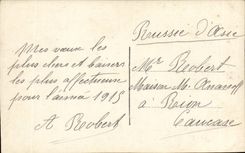 Mes vœux les
plus chers et baisers
les plus affectueux
pour l'année 1915
A Robert
Russie d'Asie
Mr Robert
Maison M.
à
Caucase